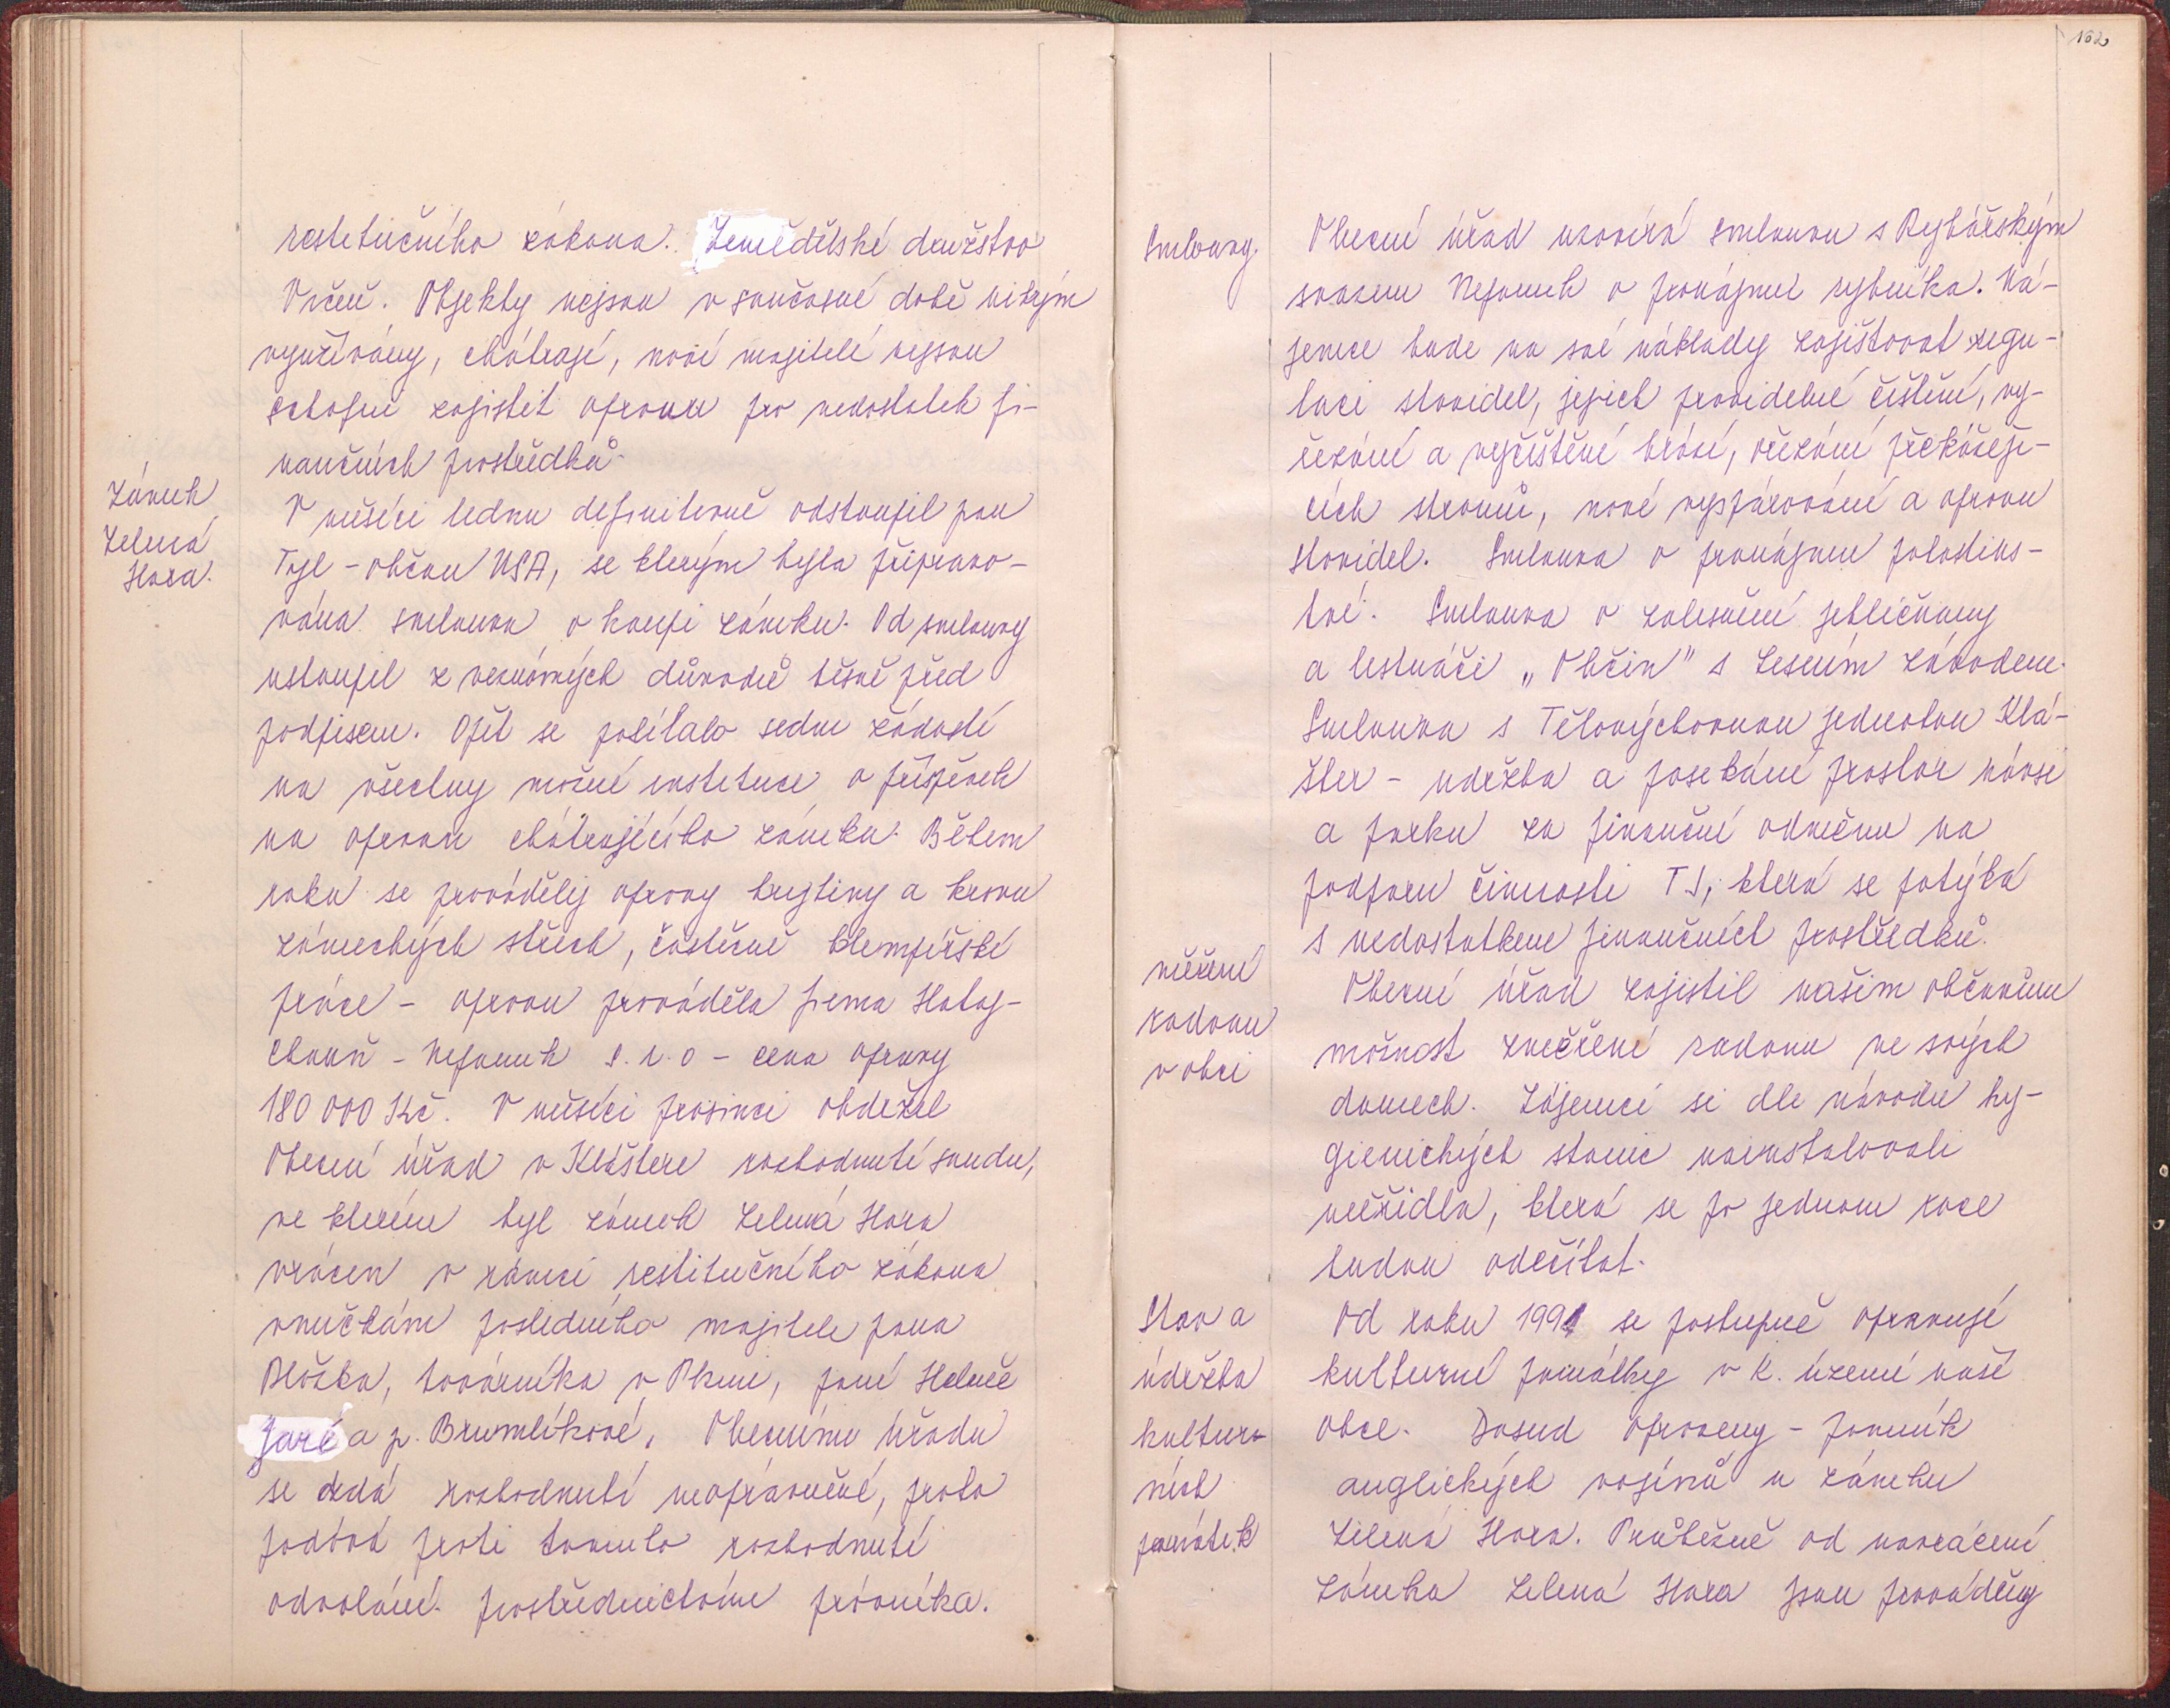 restitučního zákona. Zemědělské družstvo
Vrčeň. Objekty nejsou v současné době nikým
využívány, chátrají, noví majitelé nejsou
schopni zajistit opravu pro nedostatek fi-
nančních prostředků.
Zámek
Zelená
Hora.
V měsíci lednu definitivně odstoupil pan
Tyl - občan USA, se kterým byla připravo-
vána smlouva o koupi zámku. Od smlouvy
ustoupil z neznámých důvodů těsně před
podpisem. Opět se posílalo sedm žádostí
na všechny možné instituce o příspěvek
na opravu chátrajícího zámku. Během
roku se prováděly opravy krytiny a krovu
zámeckých střech, částečně klempířské
práce - opravu prováděla firma
- Nepomuk s.r.o - cena opravy
180 000 Kč. V měsíci prosinci obdržel
Obecní úřad v Klášteře rozhodnutí soudu,
ve kterém byl zámek Zelená Hora
vrácen v rámci restitučního zákona
vnučkám posledního majitele pana
továrníka v Plzni, paní Heleně
a p. Brumlíkové. Obecnímu úřadu
se zdá rozhodnutí neoprávněné, proto
podává proti tomuto rozhodnutí
odvolání prostřednictvím právníka.
162
Smlouvy.
Obecní úřad uzavírá smlouvu s Rybářským
svazem Nepomuk o pronájmu rybníka. Ná-
jemce bude na své náklady zajišťovat regu-
laci stavidel, jejich pravidelné čištění, vy-
řezání a vyčištění hrází, ořezání překážejí-
cích stromů, nové vyspárování a opravu
stavidel. Smlouva o pronájmu pohostins-
tví. Smlouva o zalesnění jehličnany
a listnáči „Občin" s Lesním závodem.
Smlouva s Tělovýchovnou jednotou Klá-
šter - udržba a posekání prostor návsi
a parku za finanční odměnu na
podporu činnosti TJ, která se potýká
s nedostatkem finančních prostředků.
měření
radonu
v obci
Obecní úřad zajistil našim občanům
možnost změření radonu ve svých
domech. Zájemci si dle návodu hy-
gienických stanic nainstalovali
měřidla, která se po jednom roce
budou odečítat.
Stav a
údržba
kultur-
ních
památek
Od roku 1991 se postupně opravují
kulturní památky v k. území naší
obce. Dosud opraveny - pomník
anglických vojínů u zámku
Zelená Hora. Průběžně od navrácení
zámku Zelená Hora jsou prováděny